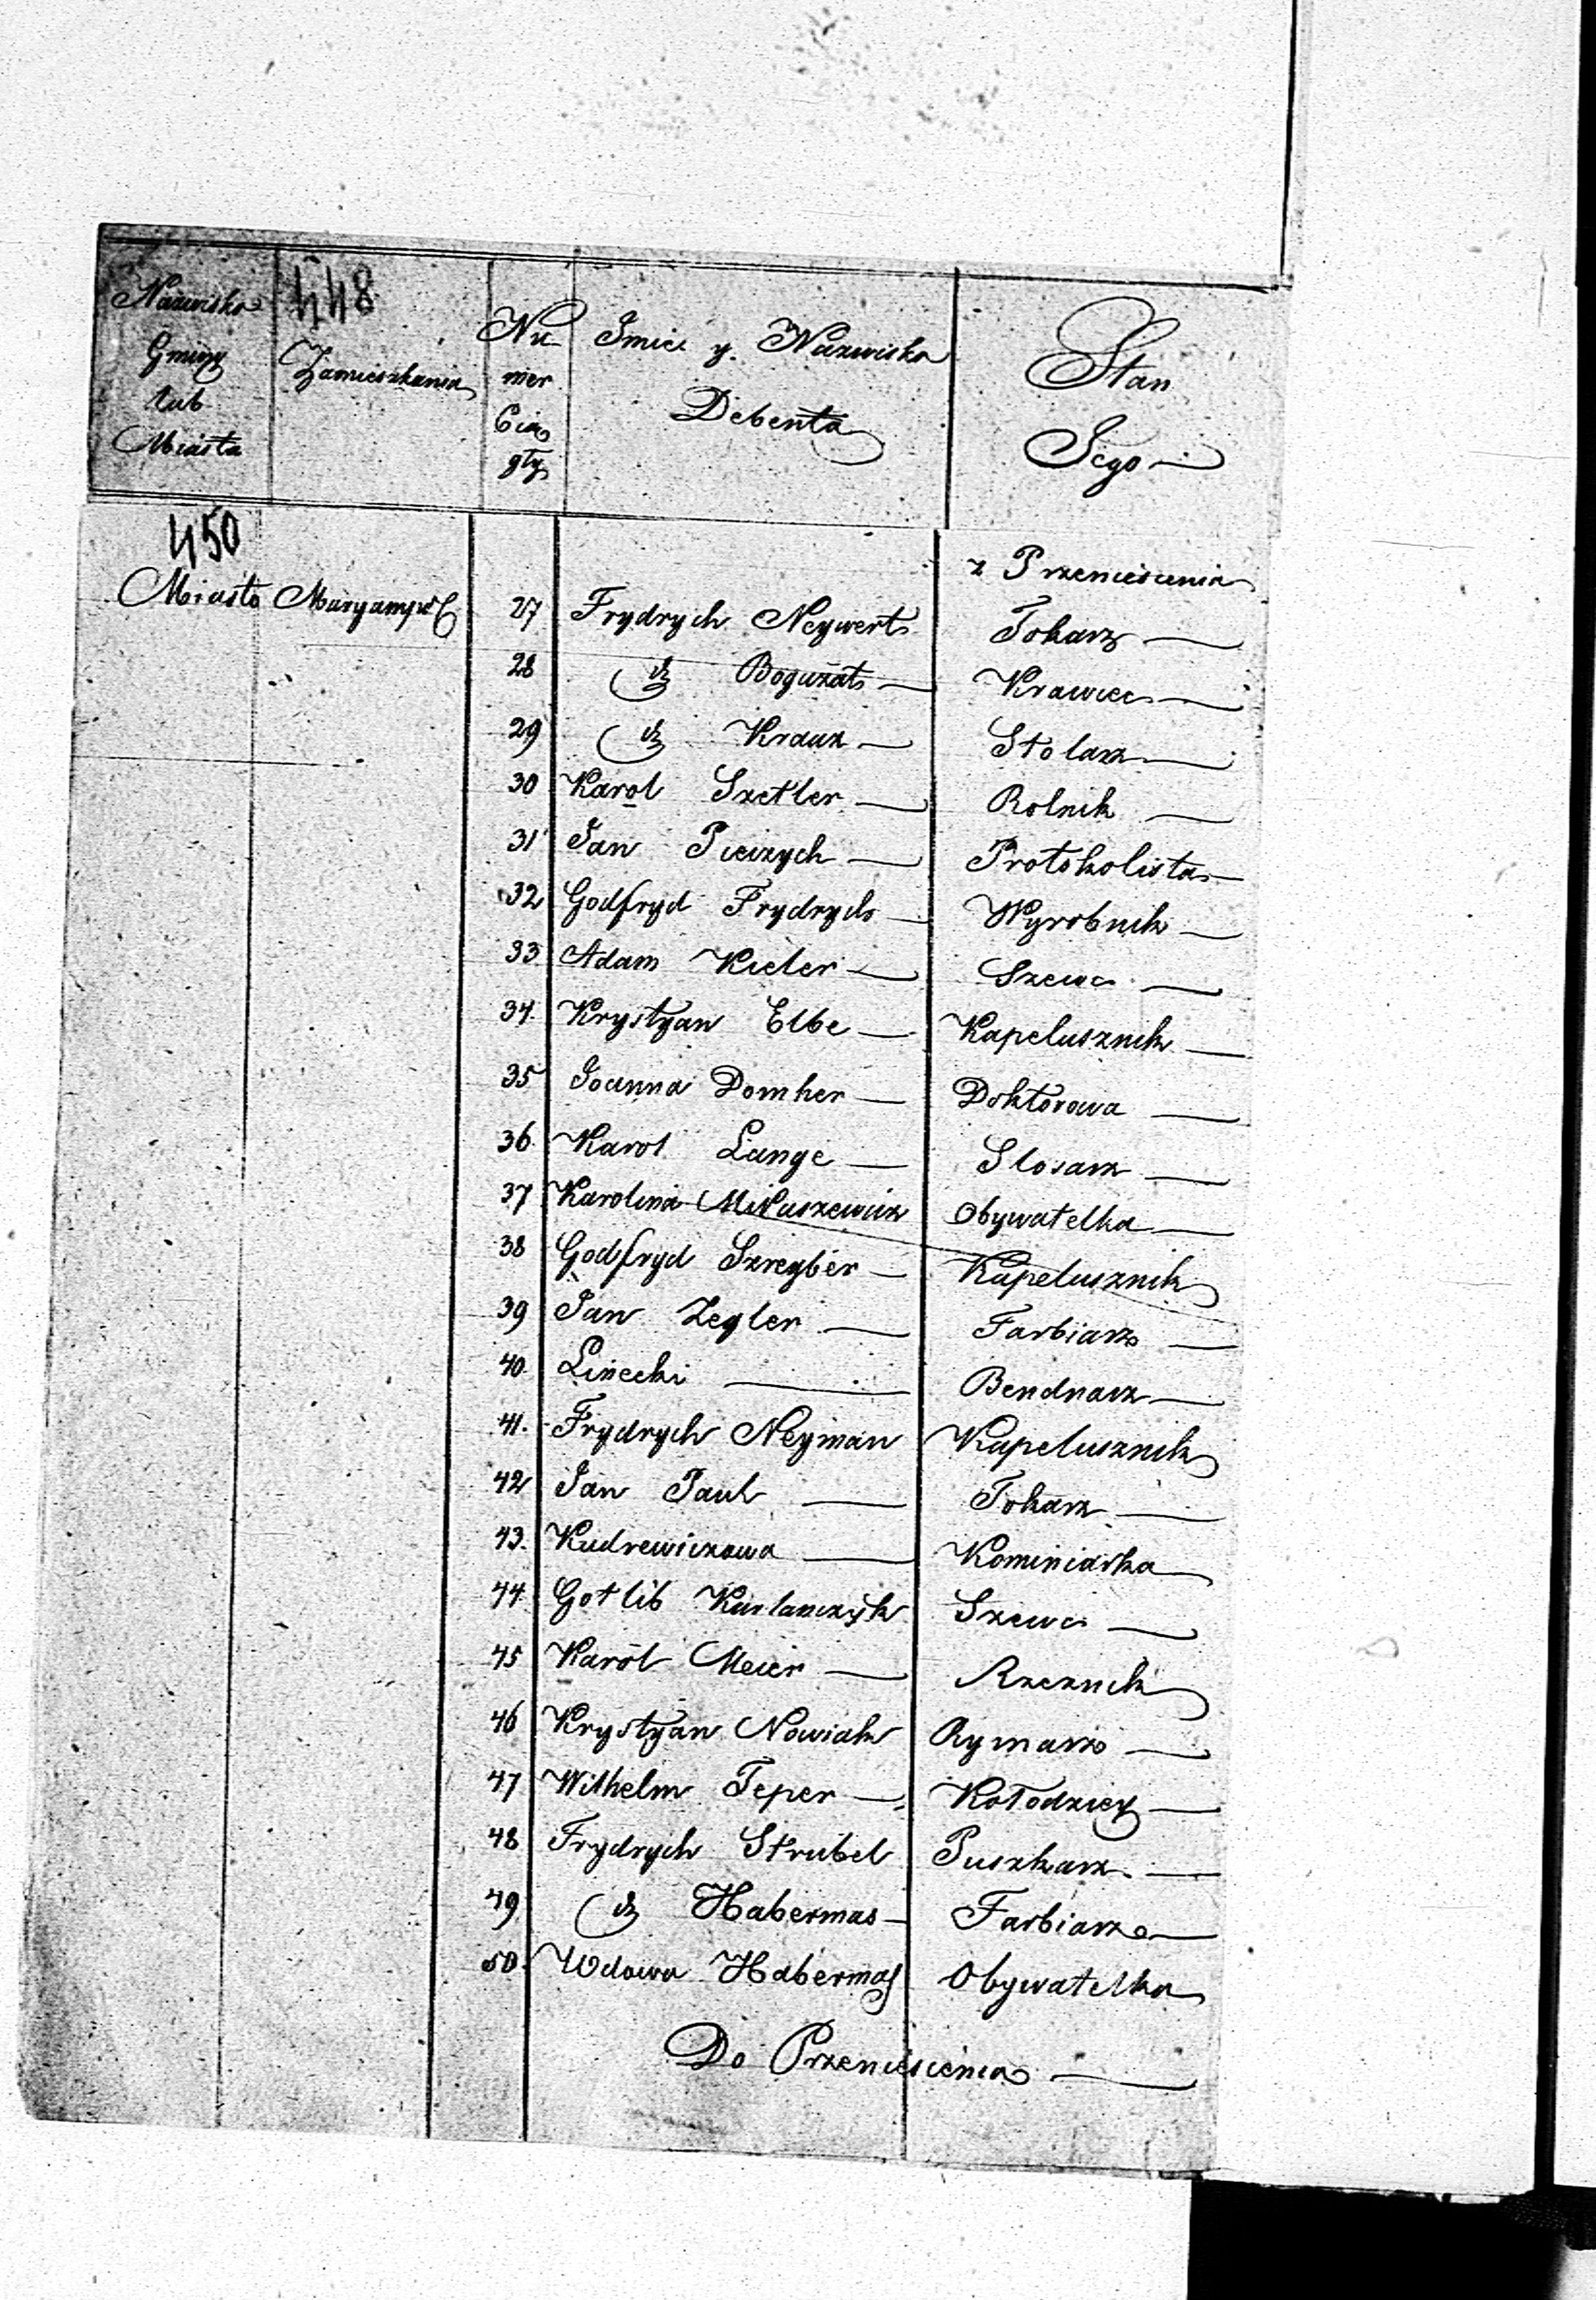 448
Nazwisko Gminy lub Miasta | Zamieszkania | Nu mer Cią gły | Imie y Nazwiska Debenta | Stan Jego
450
z Przeniesienia
Miasto Maryampol 27 Frydrych Neywert Tokarz
28 dt Boguzat Krawiec
29 dt Krauz Stolarz
30 Karol Szetler Rolnik
31 Jan Pieczych Protokolista
32 Godfryd Frydrych Wyrobnik
33 Adam Kieler Szewc
34. Krystyan Elbe Kapelusznik
35 Joanna Domker Doktorowa
36. Karol Lange Slosarz
37 Karolina Mikuszewicz Obywatelka
38 Godfryd Szreyber Kapelusznik
39 Jan Zegler Farbiarz
40. Linecki Bendnarz
41. Frydrych Neyman Kapelusznik
42 Jan Paul Tokarz
43. Kudrewiczowa Kominiarka
44. Gotlib Kurlanczyk Szewc
45 Karól Meier Rzeznik
46 Krystyan Nowiak Rymarz
47 Wilhelm Teper Kołodziey
48 Frydrych Strubel Puszkarz
49 dt Habermas Farbiarz
50. Wdowa Habermas Obywatelka
Do Przeniesienia